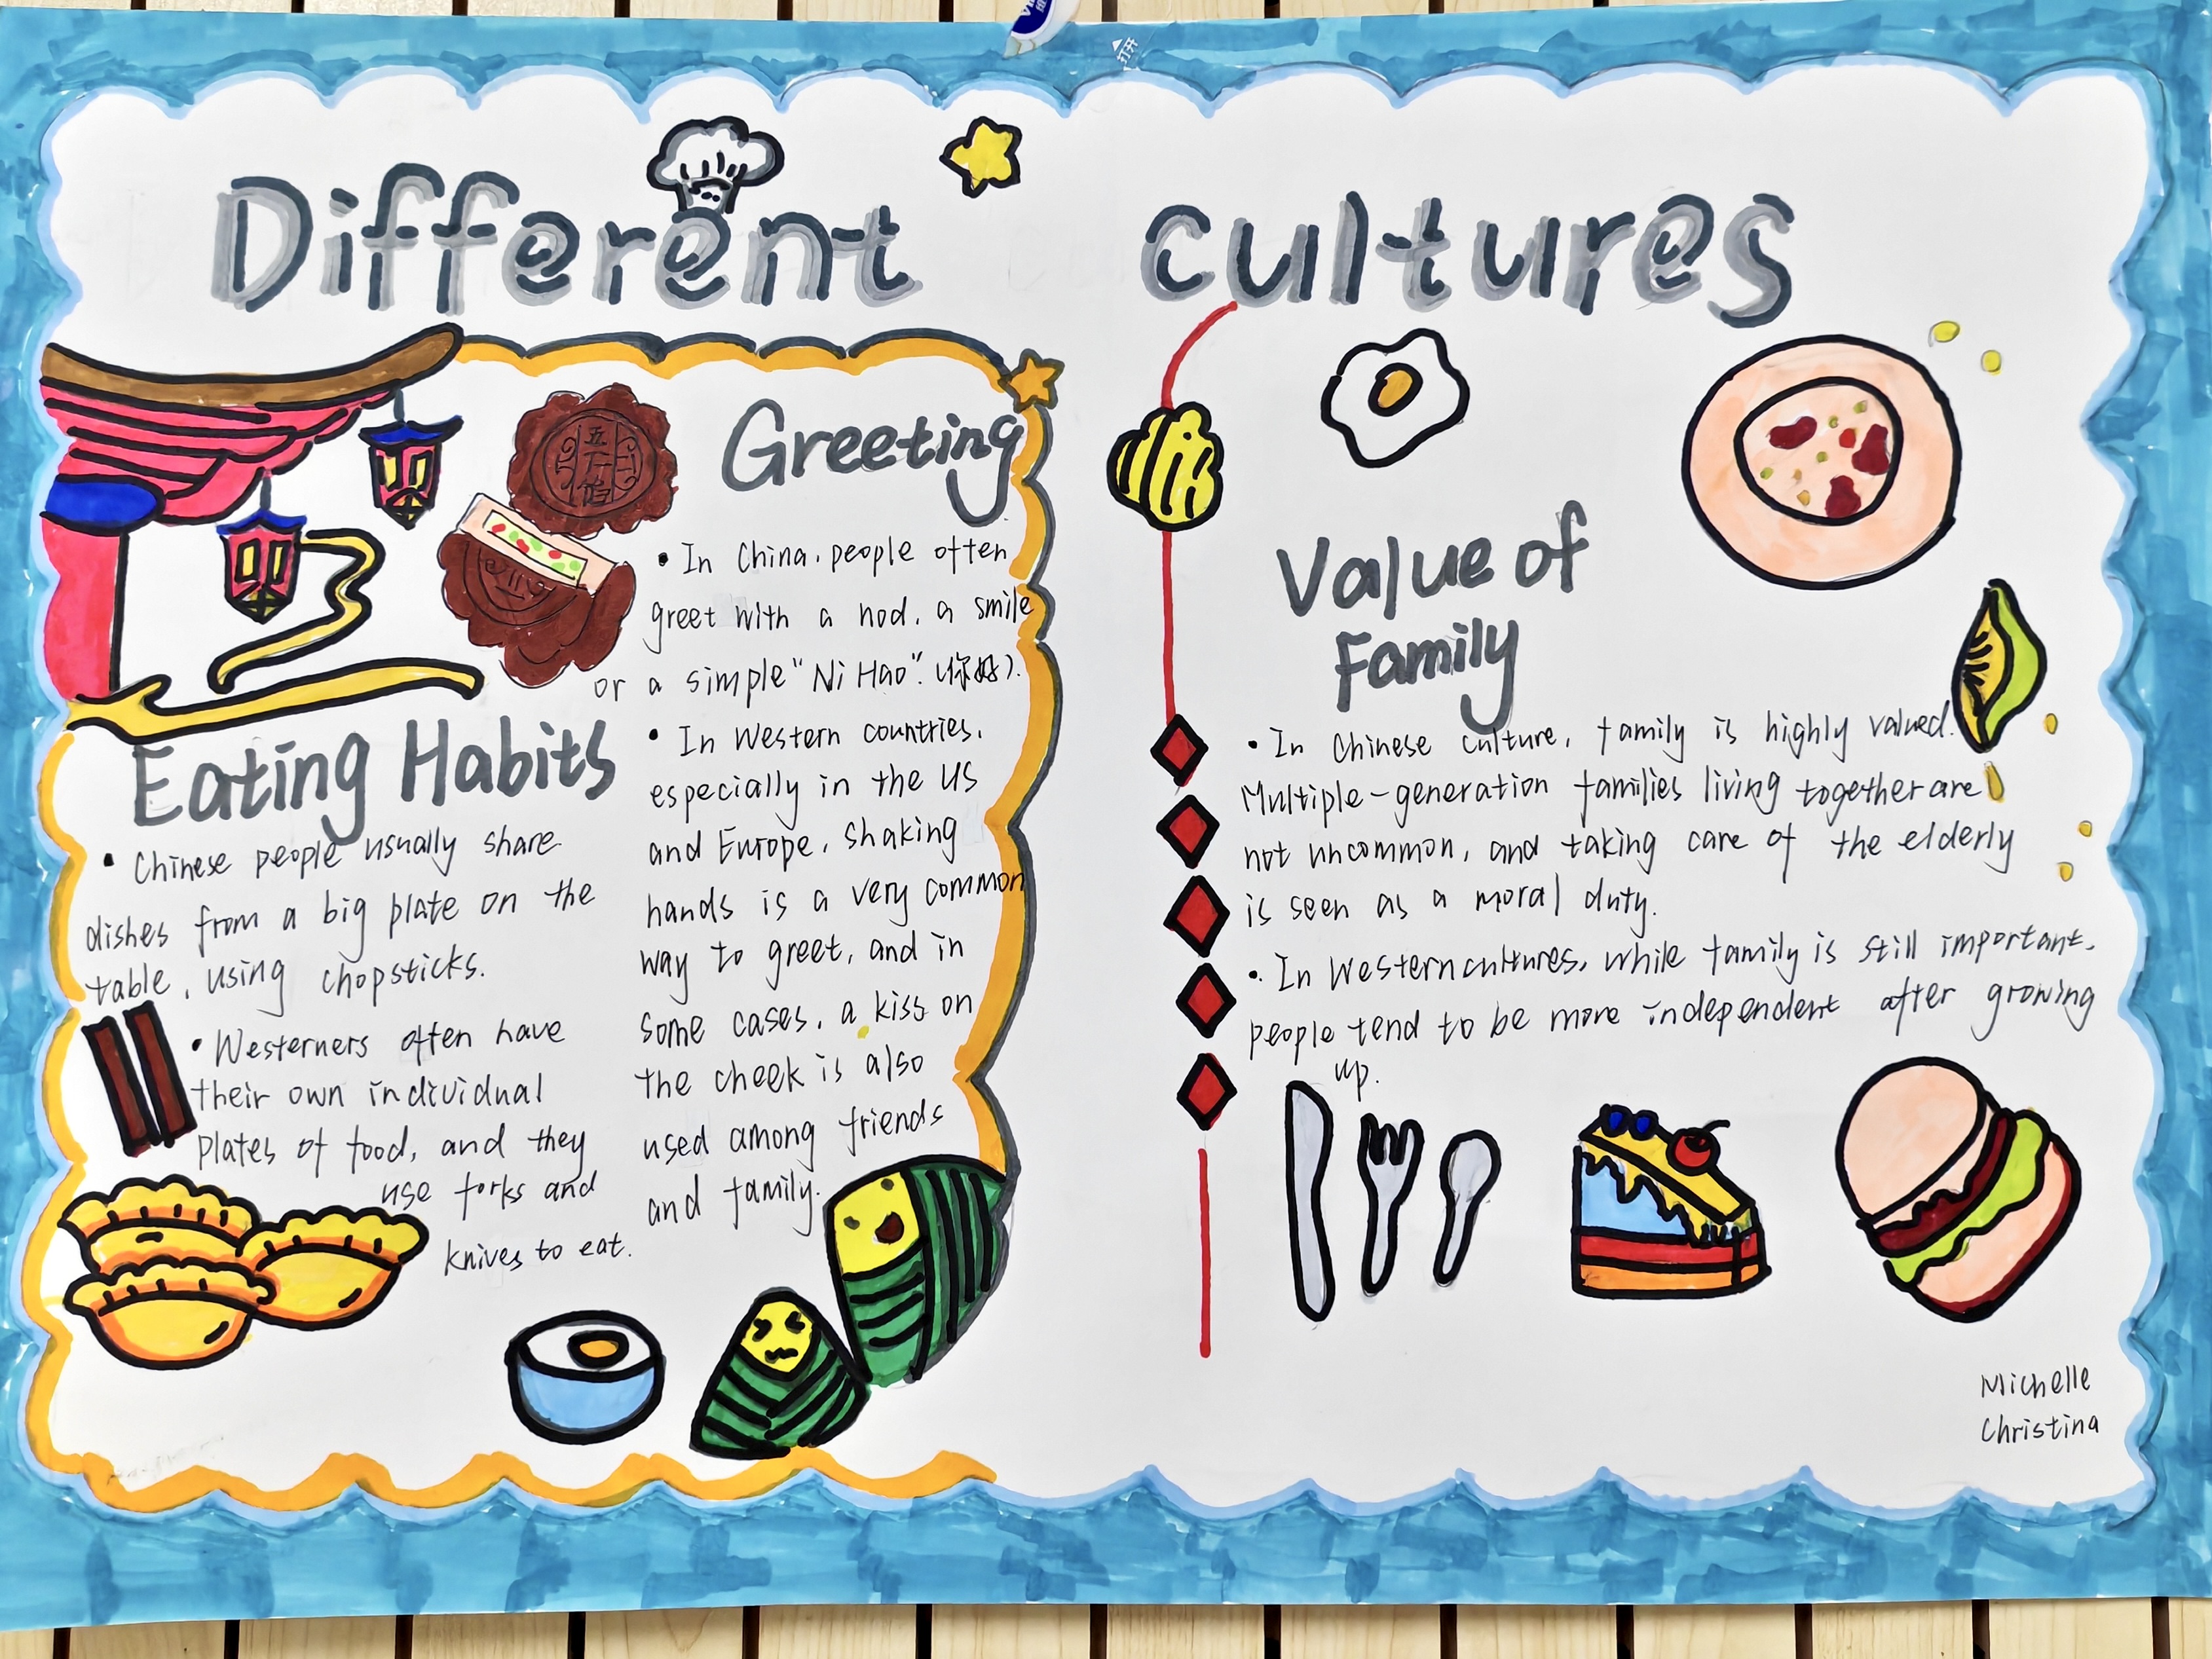 Different cultures
Greeting
• In China, people often
greet with a nod, a smile
or a simple "Ni Hao". (你好).
• In Western countries,
especially in the US
and Europe, shaking
hands is a very common
way to greet, and in
some cases, a kiss on
the cheek is also
used among friends
and family.
Eating Habits
• Chinese people usually share
dishes from a big plate on the
table, using chopsticks.
• Westerners often have
their own individual
plates of food, and they
use forks and
knives to eat.
Value of
Family
• In Chinese culture, family is highly valued.
Multiple-generation families living together are
not uncommon, and taking care of the elderly
is seen as a moral duty.
• In Western cultures, while family is still important,
people tend to be more independent after growing
up.
Michelle
Christina
五
仁